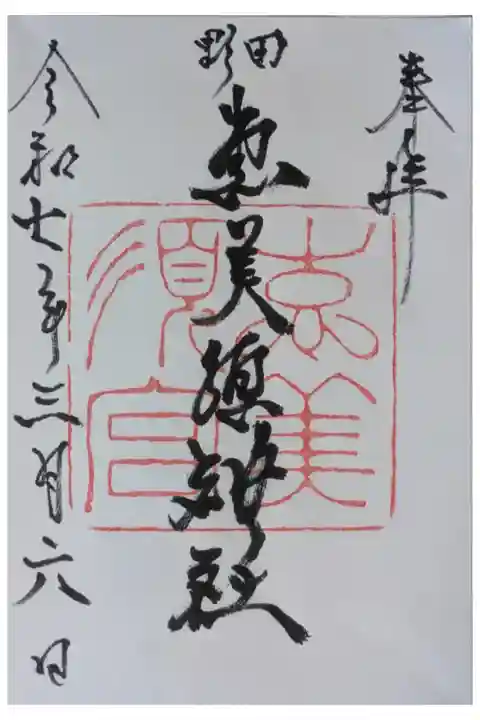 奉拝
野田
恵美須神社
恵美
須宮
令和七年三月六日